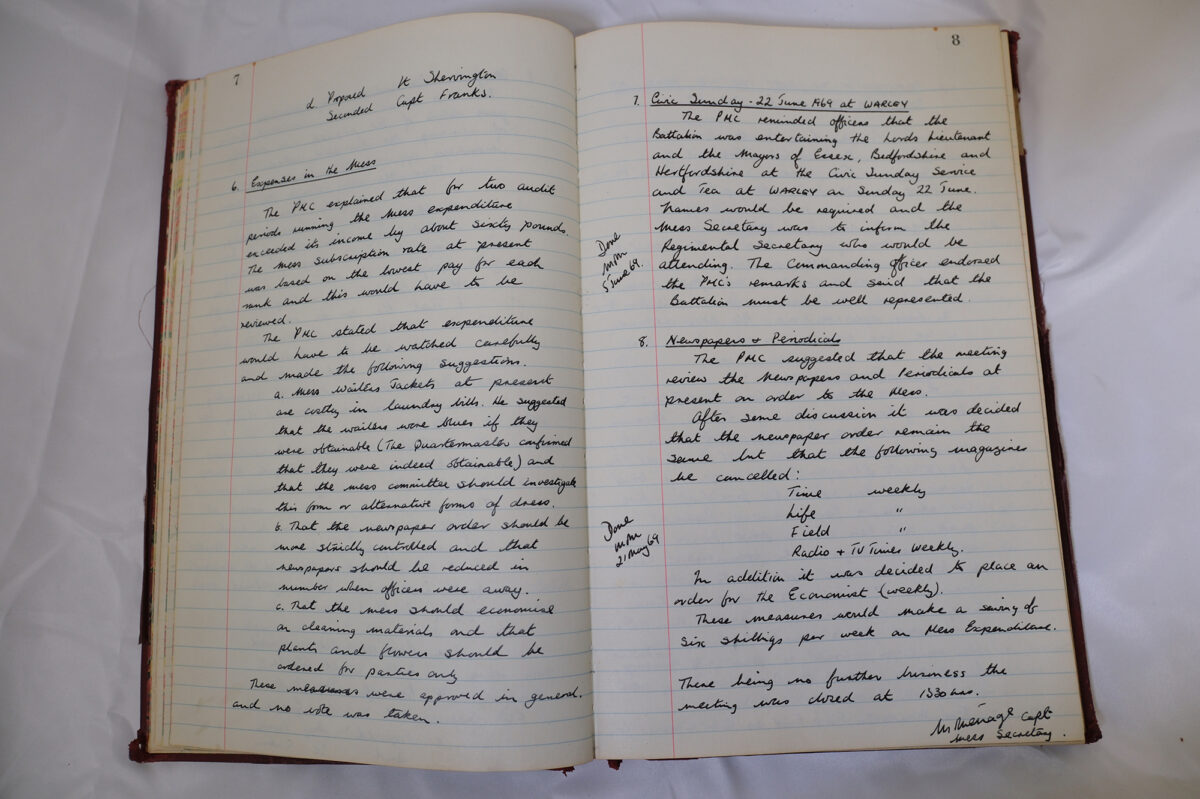 7
d. Proposed Lt Shervington
Seconded Capt Franks.
6. Expenses in the Mess
The PMC explained that for two audit
periods running the Mess expenditure
exceeded its income by about sixty pounds.
The Mess Subscription rate at present
was based on the lowest pay for each
rank and this would have to be
reviewed.
The PMC stated that expenditure
would have to be watched carefully
and made the following suggestions.
a. Mess Waiters Jackets at present
are costly in laundry bills. He suggested
that the waiters wore blues if they
were obtainable (The Quartermaster confirmed
that they were indeed obtainable) and
that the mess committee should investigate
this form or alternative forms of dress.
b. That the newspaper order should be
more strictly controlled and that
newspapers should be reduced in
number when officers were away.
c. That the mess should economise
on cleaning materials and that
plants and flowers should be
ordered for parties only
These measures were approved in general.
and no vote was taken.
8
7. Civic Sunday - 22 June 1969 at WARLEY
The PMC reminded officers that the
Battalion was entertaining the Lords Lieutenant
and the Mayors of Essex, Bedfordshire and
Hertfordshire at the Civic Sunday Service
and Tea at WARLEY on Sunday 22 June.
Names would be required and the
Mess Secretary was to inform the
Regimental Secretary who would be
attending. The Commanding Officer endorsed
the PMC's remarks and said that the
Battalion must be well represented.
Done
MM
5 June 69.
8. Newspapers + Periodicals
The PMC suggested that the meeting
review the Newspapers and Periodicals at
present on order to the Mess.
After some discussion it was decided
that the newspaper order remain the
same but that the following magazines
be cancelled:
Time weekly
Life "
Field "
Radio + TV Times weekly.
Done
MM
21 May 69
In addition it was decided to place an
order for the Economist (weekly).
These measures would make a saving of
six shillings per week on Mess Expenditure.
There being no further business the
meeting was closed at 1330 hrs.
M Menage Capt
Mess Secretary.